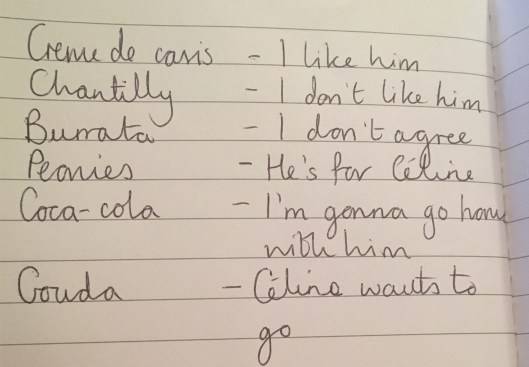 Creme de casis - I like him
Chantilly - I don't like him
Burrata - I don't agree
Peonies - He's for Céline
Coca-cola - I'm gonna go home
with him
Gouda - Céline wants to
go